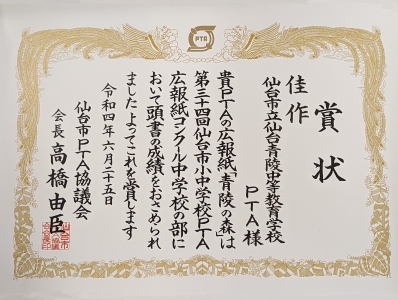 PTA
賞状
佳作
仙台市立仙台青陵中等教育学校
PTA様
貴PTAの広報紙「青陵の森」は
第三十四回仙台市小中学校PTA
広報紙コンクール中学校の部に
おいて頭書の成績をおさめられ
ましたよってこれを賞します
令和四年六月二十五日
仙台市PTA協議会
会長 高橋由臣